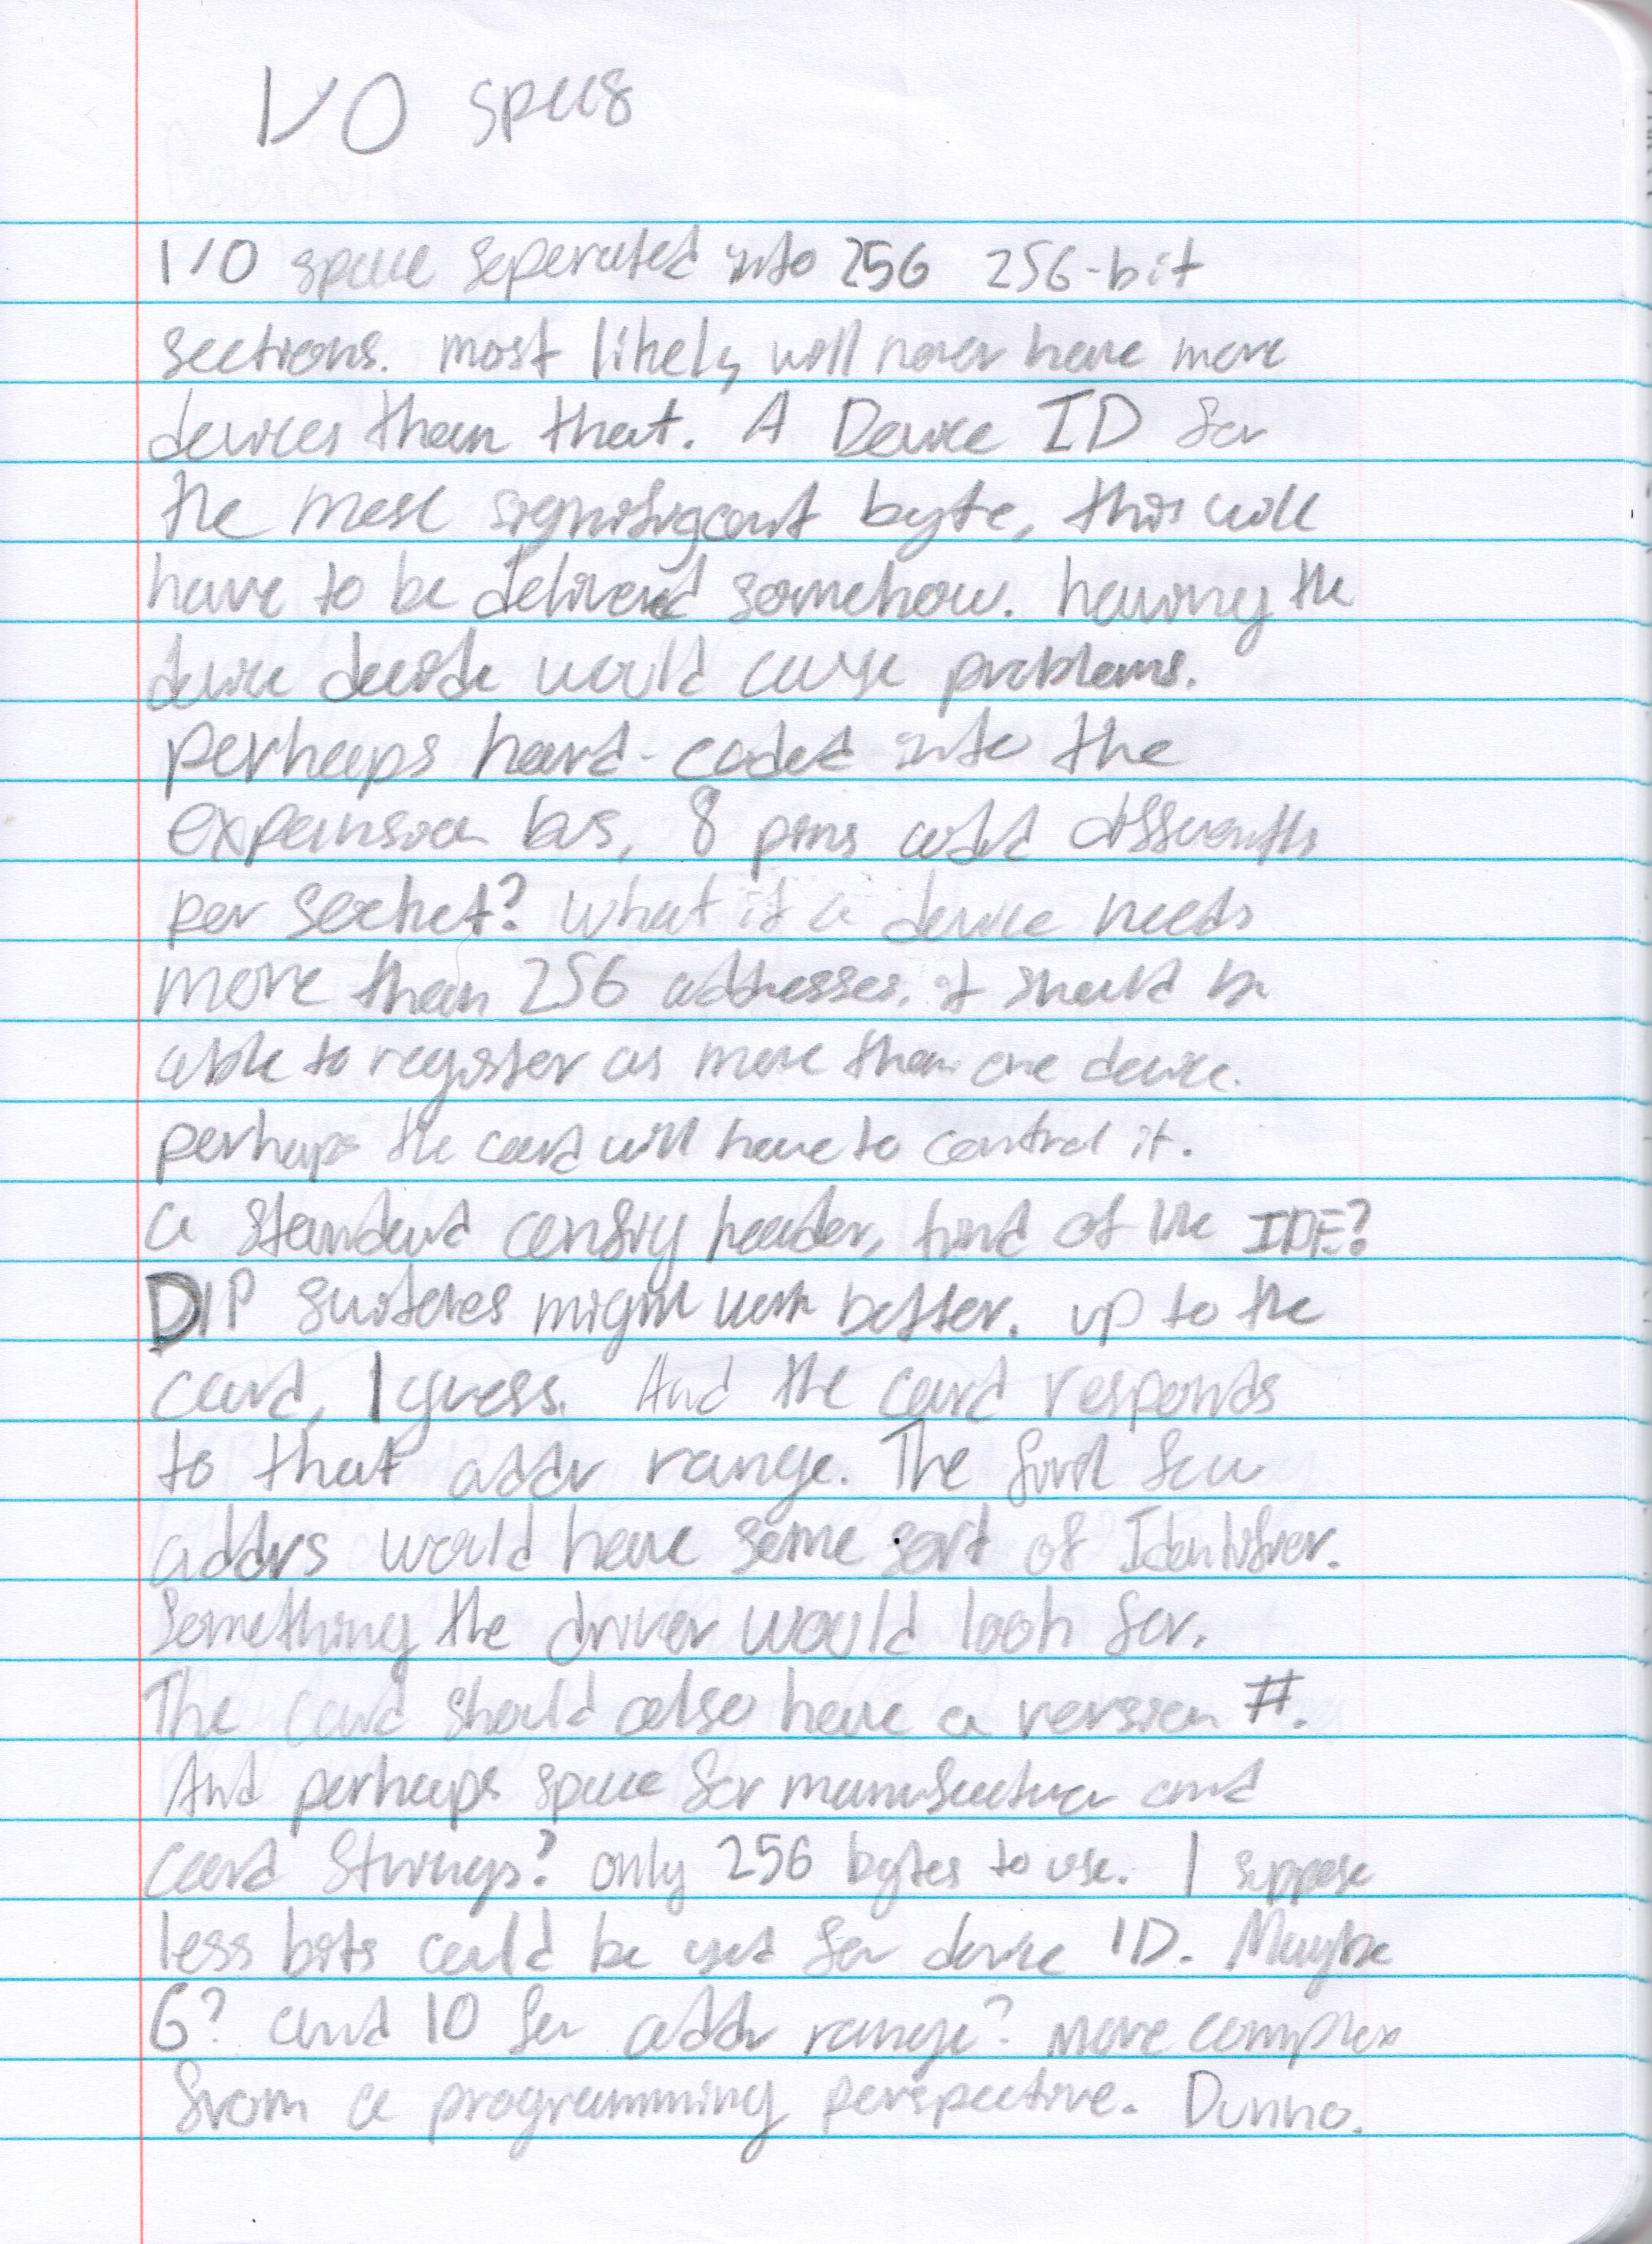 I/O specs
I/O space seperated into 256 256-bit
sections. most likely will never have more
devices than that. A Device ID for
the most signifigcant byte, this will
have to be delivered somehow. having the
device decide would cause problems.
perhaps hard-coded into the
expansion bus, 8 pins coded differently
per socket? What if a device needs
more than 256 addresses. it should be
able to register as more than one device.
perhaps the card will have to control it.
a standard config header, kind of like IDE?
DIP switches might work better. up to the
card, I guess. And the card responds
to that addr range. The first few
addrs would have some sort of Identifier.
Something the driver would look for.
The card should also have a version #.
And perhaps space for manufacturer and
card strings? only 256 bytes to use. I suppose
less bits could be used for device ID. Maybe
6? and 10 for addr range? more complex
from a programming perspective. Dunno.